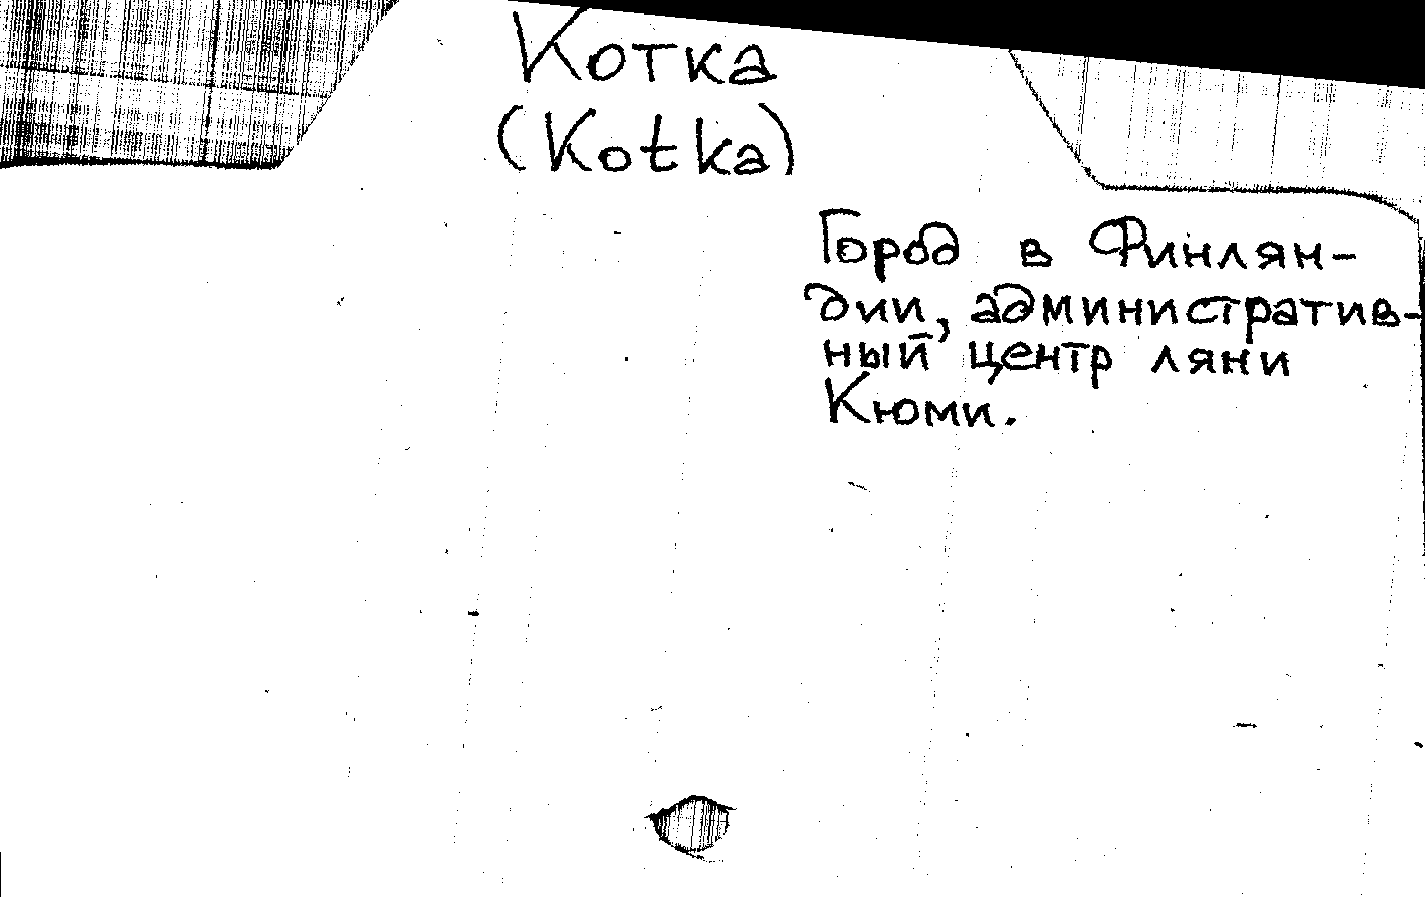 Котка
(Kotka)
Город в Финлян-
дии, административ-
ный центр ляни
Кюми.